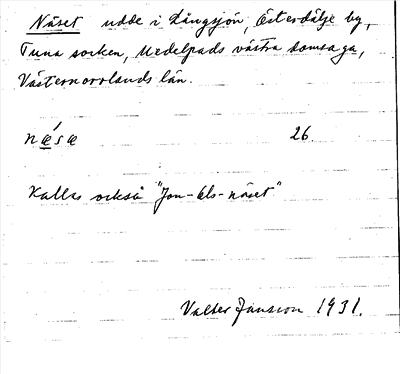 Näset udde i Långsjön, Österdälje by,
Tuna socken, Medelpads västra domsaga,
Västernorrlands län.
næ´sæ 26.
Kallas också "Jon-Els-näset"
Valter Jansson 1931.